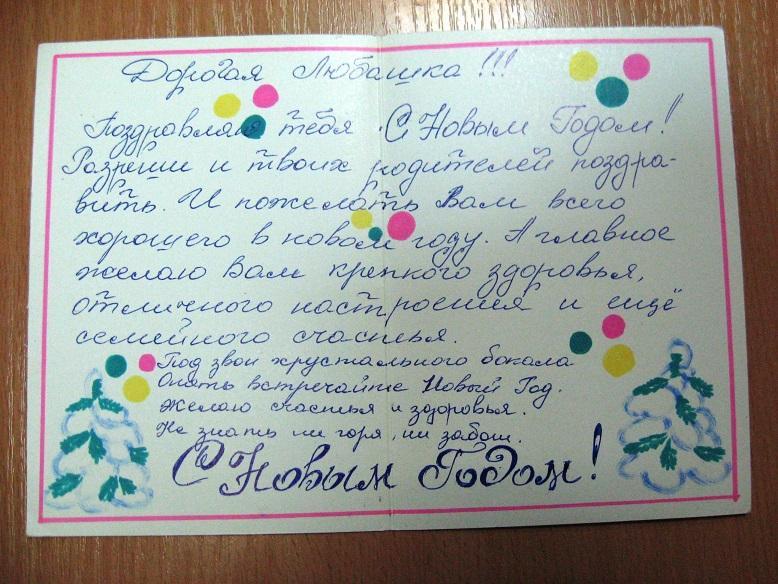 Дорогая Любашка!!!
Поздравляю тебя С Новым Годом!
Разреши и твоих родителей поздра-
вить. И пожелать Вам всего
хорошего в новом году. А главное
желаю Вам крепкого здоровья,
отличного настроения и ещё
семейного счастья.
Под звон хрустального бокала
Опять встречайте Новый Год.
Желаю счастья и здоровья.
Не знать ни горя, ни забот.
С Новым Годом!